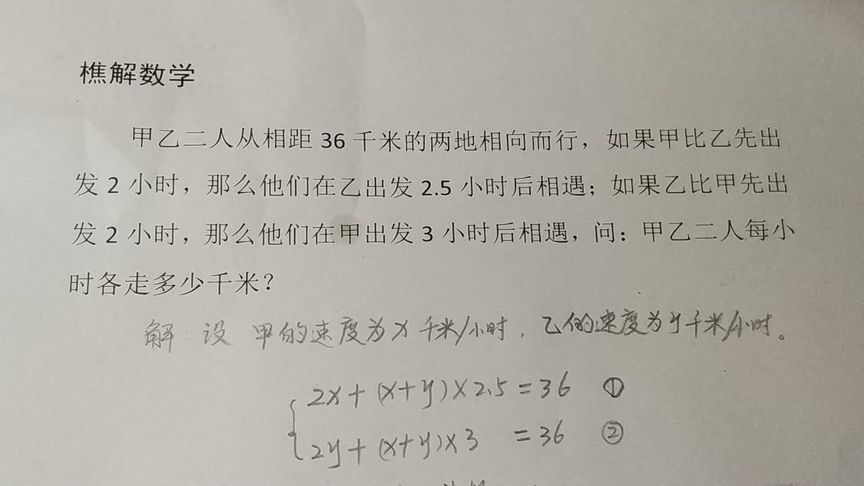 樵解数学
甲乙二人从相距 36 千米的两地相向而行，如果甲比乙先出
发 2 小时，那么他们在乙出发 2.5 小时后相遇；如果乙比甲先出
发 2 小时，那么他们在甲出发 3 小时后相遇，问：甲乙二人每小
时各走多少千米？
解 设 甲的速度为x千米/小时，乙的速度为y千米/小时。
2x+(x+y)×2.5=36 ①
2y+(x+y)×3 =36 ②